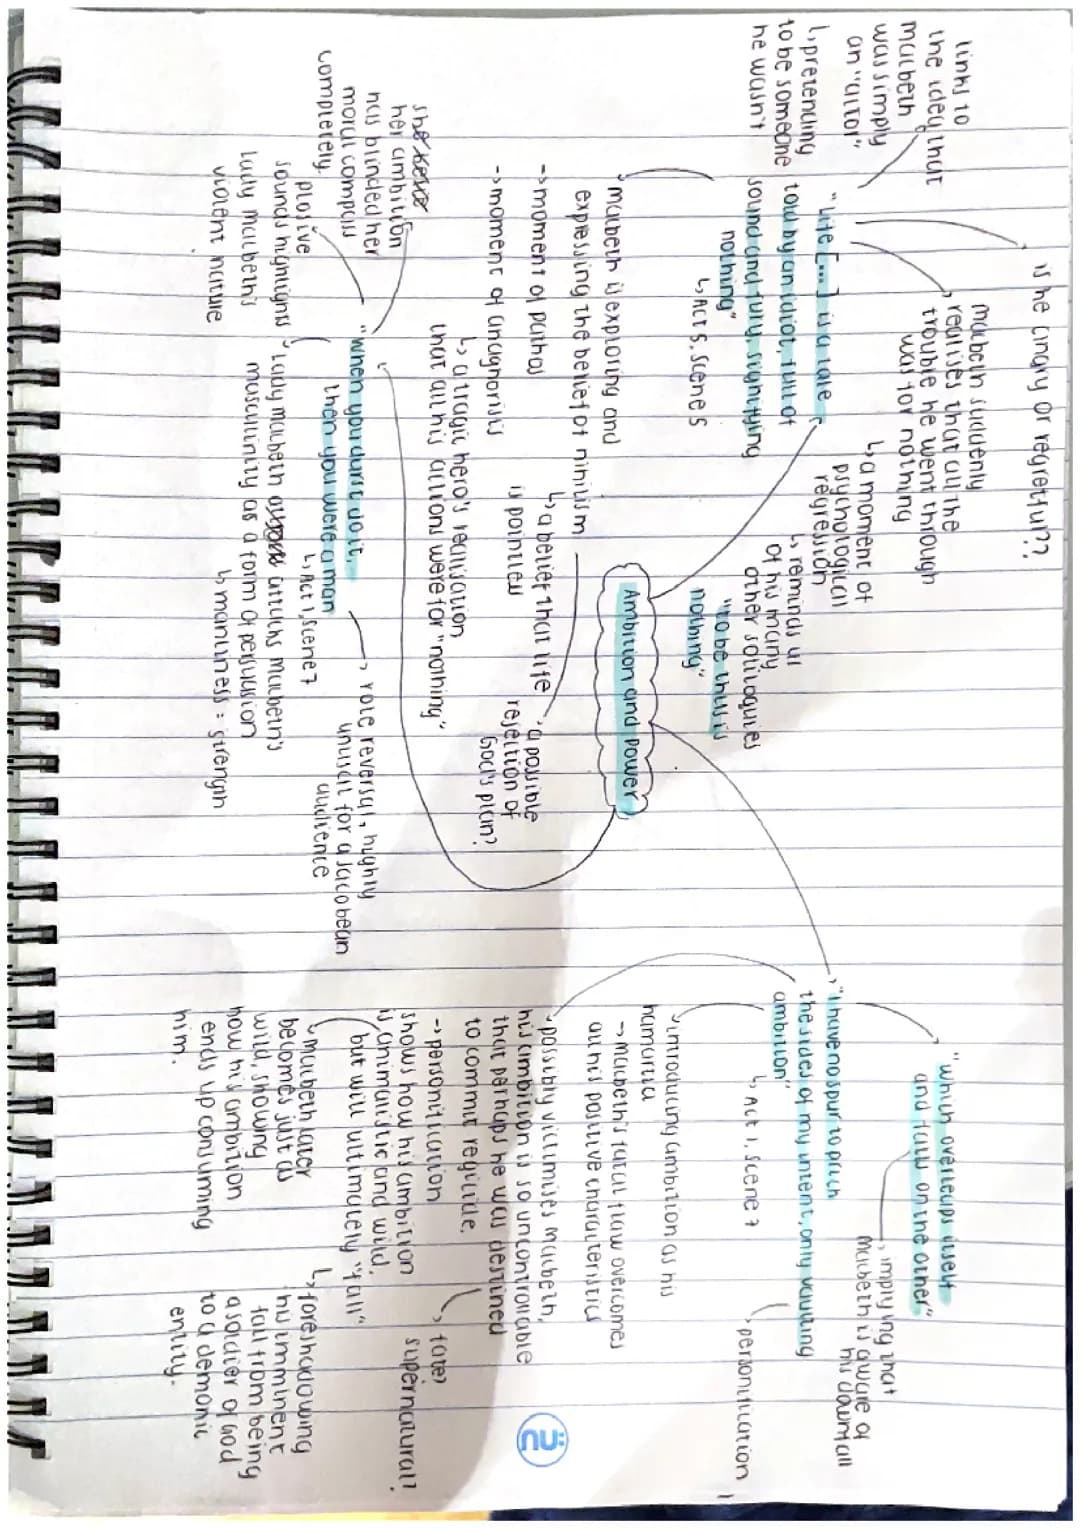 is he angry or regretful??
links to
the idea that
macbeth
was simply
an "actor"
↳ pretending
to be someone
he wasn't
macbeth suddenly
realises that all the
trouble he went through
was for nothing
↳ a moment of
psychological
regression
↳ reminds us
of his many
other soliloquies
"to be thus is
nothing"
"Life [...] is a tale
told by an idiot, full of
sound and fury, signifying
nothing"
↳ Act 5, scene 5
macbeth is exploring and
expressing the belief of nihilism
↳ a belief that life
is pointless
a possible
rejection of
God's plan?
→ moment of pathos
→ moment of anagnorisis
↳ a tragic hero's realisation
that all his actions were for "nothing"
Ambition and Power
her ambition
has blinded her
moral compass
completely.
plosive
sounds highlights
lady macbeth's
violent nature
"when you durst do it,
then you were a man
↳ Act 1, scene 7
lady macbeth attacks macbeth's
masculinity as a form of persuasion
↳ manliness = strength
→ role reversal, highly
unusual for a Jacobean
audience
"which o'erleaps itself
and falls on the other"
→ implying that
macbeth is aware of
his downfall
"I have no spur to prick
the sides of my intent, only vaulting
ambition"
↳ Act 1, scene 7
personification
introducing ambition as his
hamartia
→ macbeth's fatal flaw overcomes
all his positive characteristics
possibly victimises macbeth,
his ambition is so uncontrollable
that perhaps he was destined
to commit regicide.
→ fate?
supernatural?
→ personification
shows how his ambition
is animalistic and wild,
but will ultimately "fall"
↳ foreshadowing
his imminent
fall from being
a soldier of God
to a demonic
entity.
macbeth later
becomes just as
wild, showing
how his ambition
ends up consuming
him.